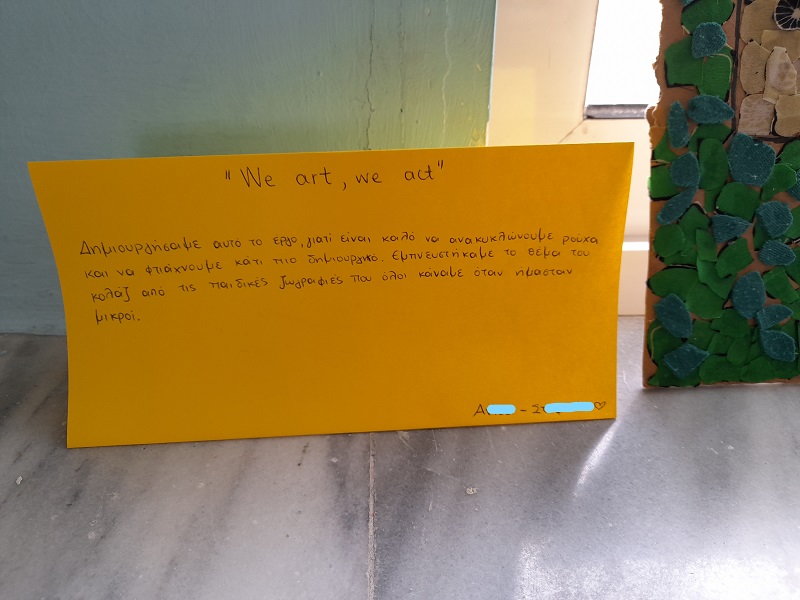 "We art, we act"
Δημιουργήσαμε αυτό το έργο, γιατί είναι καλό να ανακυκλώνουμε ρούχα
και να φτιάχνουμε κάτι πιο δημιουργικό. Εμπνευστήκαμε το θέμα του
κολάζ από τις παιδικές ζωγραφιές που όλοι κάναμε όταν ήμασταν
μικροί.